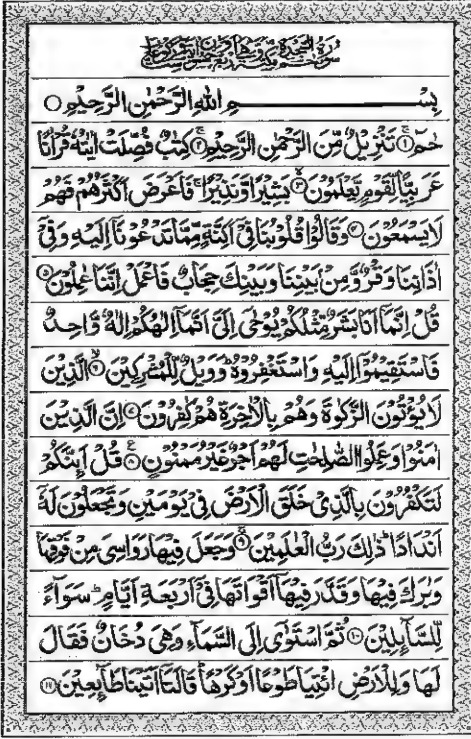 بِسْمِ اللهِ الرَّحْمٰنِ الرَّحِيْمِ ○
حٰمٓ ۚ﴿۱﴾ تَنْزِيْلٌ مِّنَ الرَّحْمٰنِ الرَّحِيْمِ ۚ﴿۲﴾ كِتٰبٌ فُصِّلَتْ اٰيٰتُهٗ قُرْاٰنًا
عَرَبِيًّا لِّقَوْمٍ يَّعْلَمُوْنَ ۙ﴿۳﴾ بَشِيْرًا وَّنَذِيْرًا ۚ فَاَعْرَضَ اَكْثَرُهُمْ فَهُمْ
لَا يَسْمَعُوْنَ ﴿۴﴾ وَقَالُوْا قُلُوْبُنَا فِيْۤ اَكِنَّةٍ مِّمَّا تَدْعُوْنَاۤ اِلَيْهِ وَفِيْۤ
اٰذَانِنَا وَقْرٌ وَّمِنْۢ بَيْنِنَا وَبَيْنِكَ حِجَابٌ فَاعْمَلْ اِنَّنَا عٰمِلُوْنَ ﴿۵﴾
قُلْ اِنَّمَاۤ اَنَا بَشَرٌ مِّثْلُكُمْ يُوْحٰۤى اِلَيَّ اَنَّمَاۤ اِلٰهُكُمْ اِلٰهٌ وَّاحِدٌ
فَاسْتَقِيْمُوْۤا اِلَيْهِ وَاسْتَغْفِرُوْهُ ؕ وَوَيْلٌ لِّلْمُشْرِكِيْنَ ۙ﴿۶﴾ الَّذِيْنَ
لَا يُؤْتُوْنَ الزَّكٰوةَ وَهُمْ بِالْاٰخِرَةِ هُمْ كٰفِرُوْنَ ﴿۷﴾ اِنَّ الَّذِيْنَ
اٰمَنُوْا وَعَمِلُوا الصّٰلِحٰتِ لَهُمْ اَجْرٌ غَيْرُ مَمْنُوْنٍ ﴿۸﴾ قُلْ اَئِنَّكُمْ
لَتَكْفُرُوْنَ بِالَّذِيْ خَلَقَ الْاَرْضَ فِيْ يَوْمَيْنِ وَتَجْعَلُوْنَ لَهٗۤ
اَنْدَادًا ؕ ذٰلِكَ رَبُّ الْعٰلَمِيْنَ ۚ﴿۹﴾ وَجَعَلَ فِيْهَا رَوَاسِيَ مِنْ فَوْقِهَا
وَبٰرَكَ فِيْهَا وَقَدَّرَ فِيْهَاۤ اَقْوَاتَهَا فِيْۤ اَرْبَعَةِ اَيَّامٍ ؕ سَوَآءً
لِّلسَّآئِلِيْنَ ﴿۱۰﴾ ثُمَّ اسْتَوٰۤى اِلَى السَّمَآءِ وَهِيَ دُخَانٌ فَقَالَ
لَهَا وَلِلْاَرْضِ ائْتِيَا طَوْعًا اَوْ كَرْهًا ؕ قَالَتَاۤ اَتَيْنَا طَآئِعِيْنَ ﴿۱۱﴾